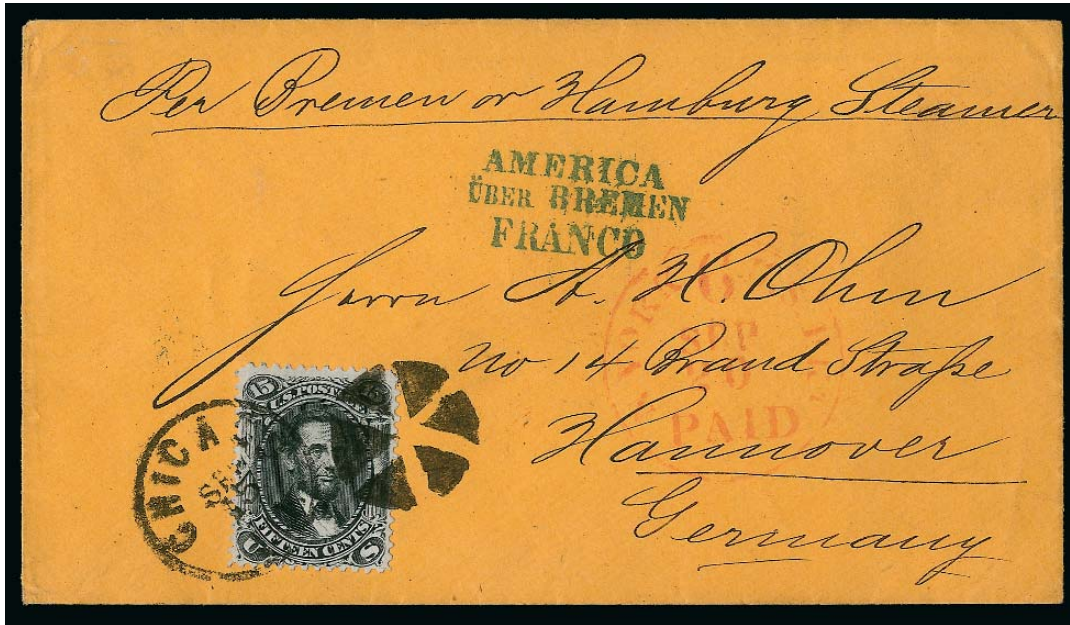 Per Bremen or Hamburg Steamer
AMERICA
ÜBER BREMEN
FRANCO
Herrn A. H. Ohm
No 14 Brand Straße
Hannover
Germany
SEP
PAID
CHICA
SEP
15 15
U.S. POSTAGE
FIFTEEN CENTS
U S